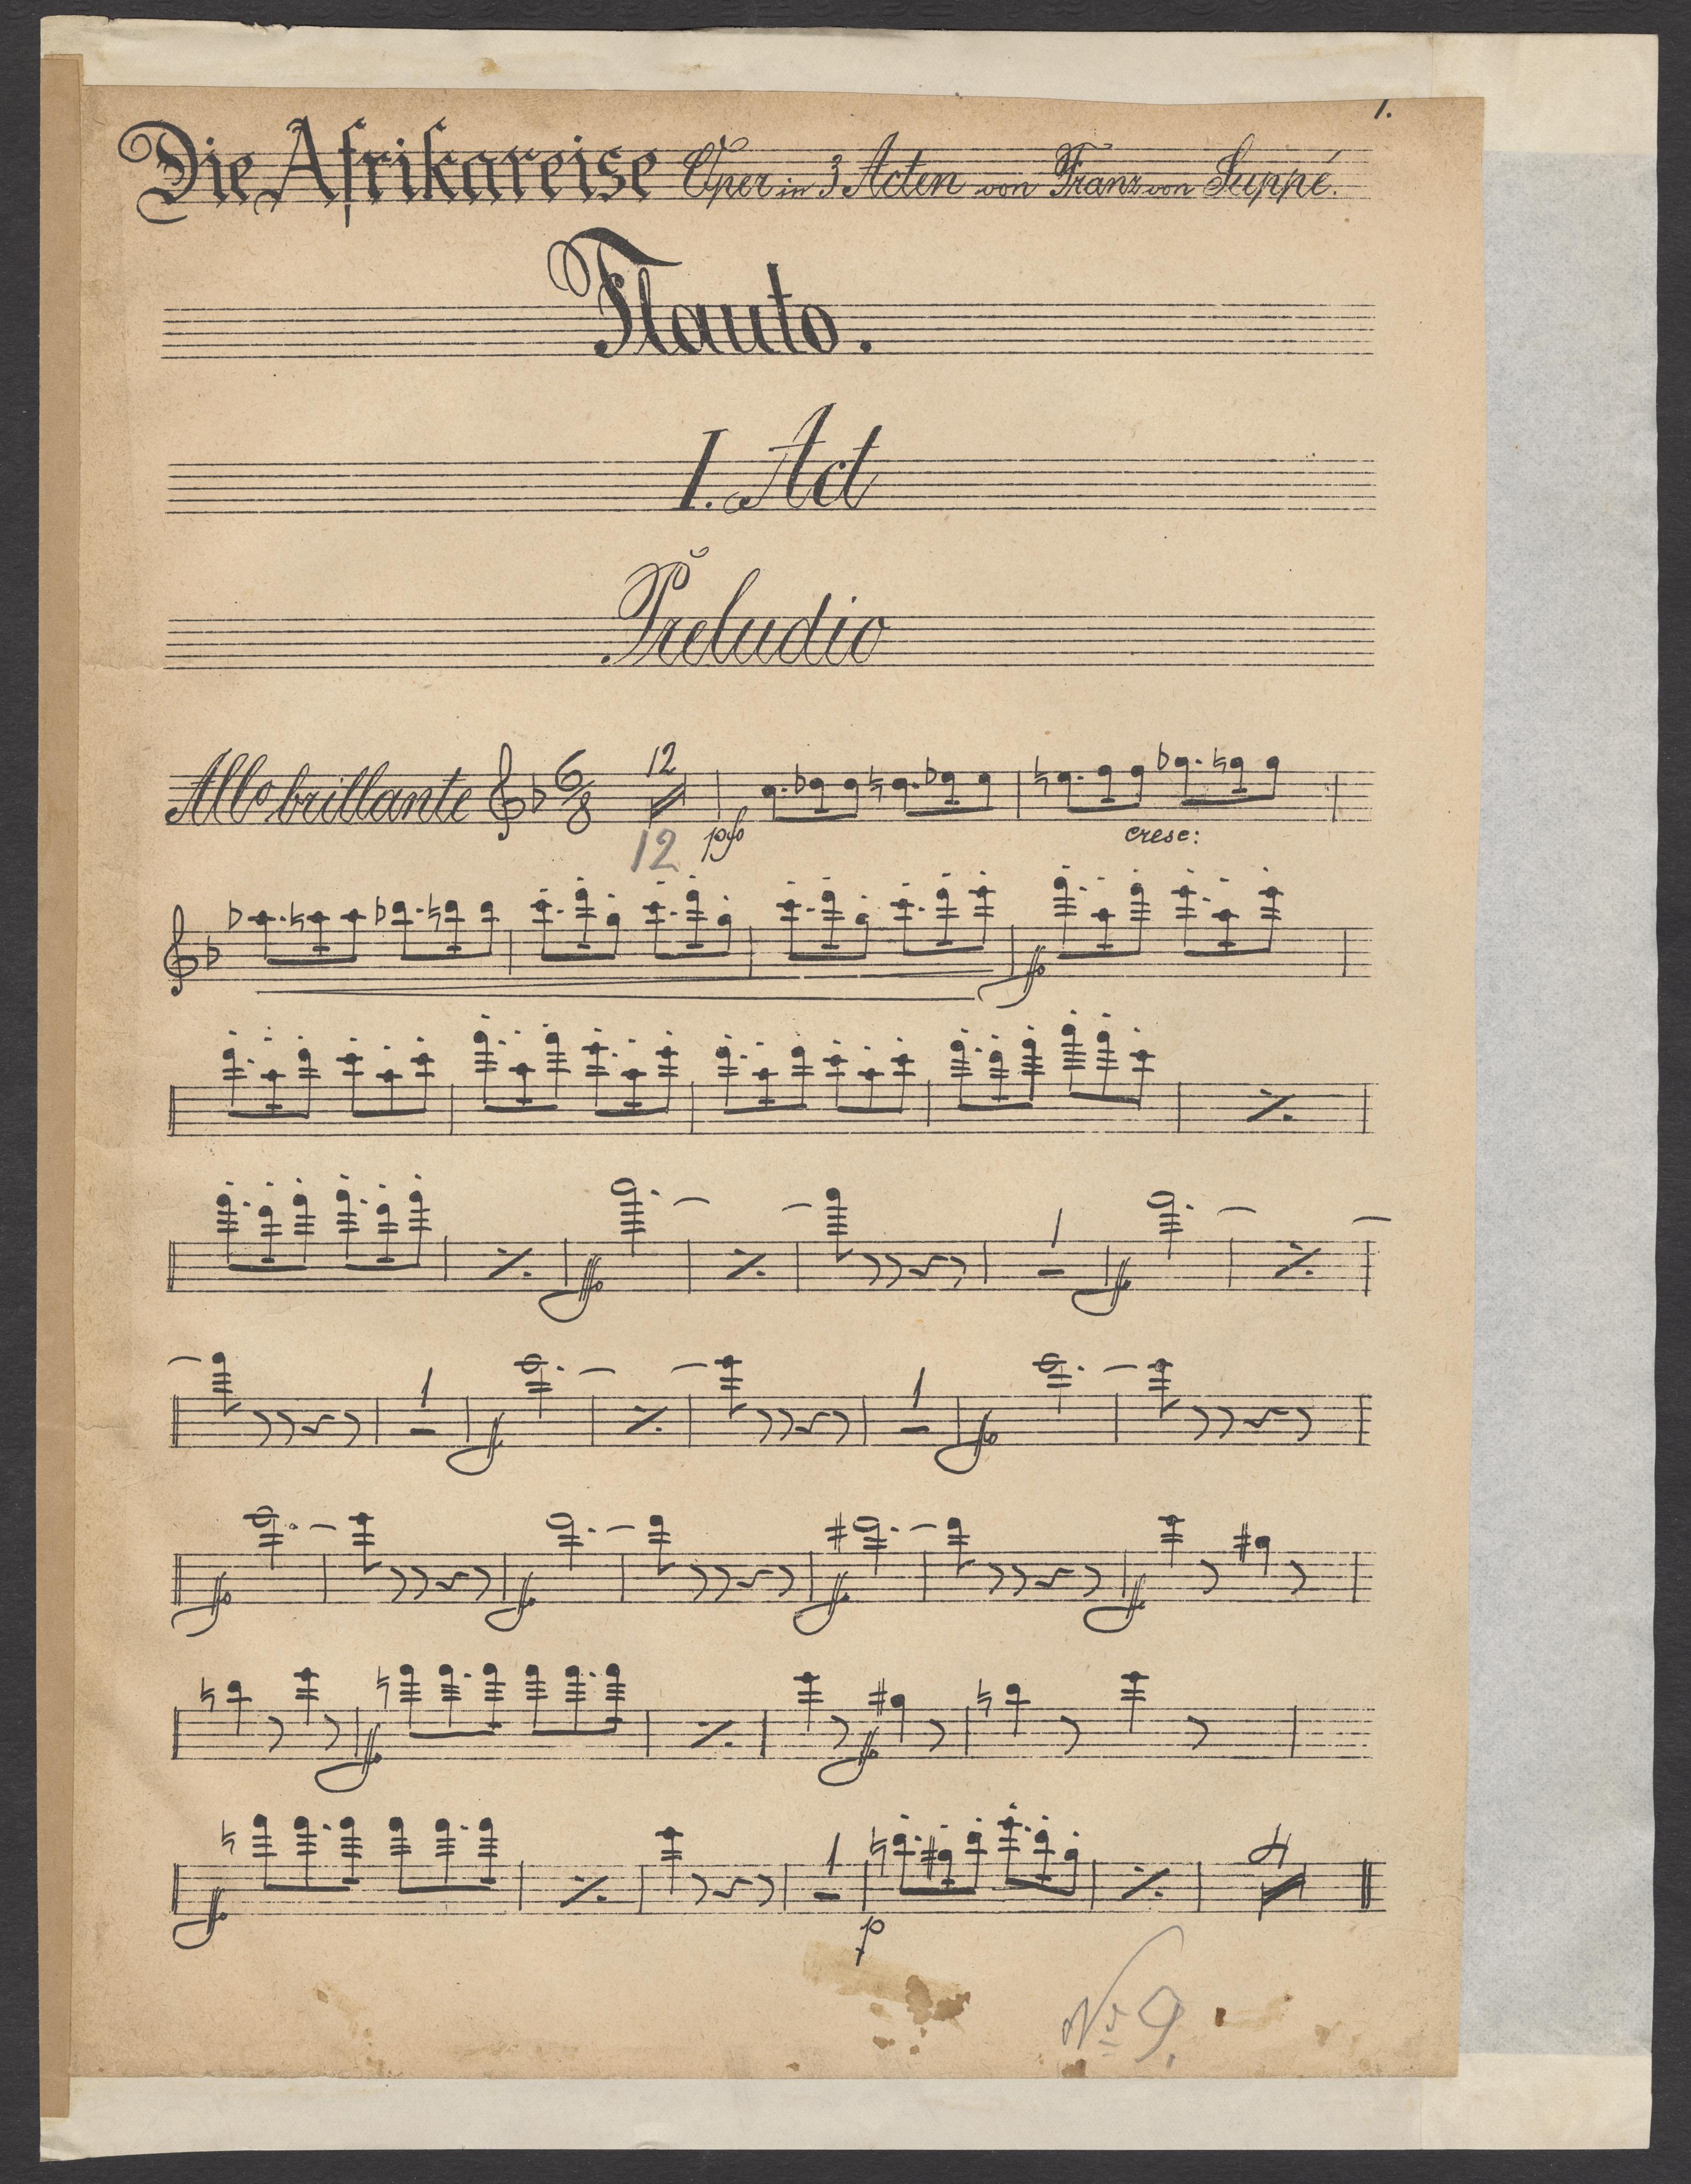 1.
Die Afrikareise Oper in 3 Acten von Franz von Suppé.
Flauto.
I. Act
Preludio
Allo brillante 6/8 12
12 pf cresc:
ff
ff ff
1
1 1
ff ff
ff ff ff ff
ff ff
1 4
ff p
No 9.